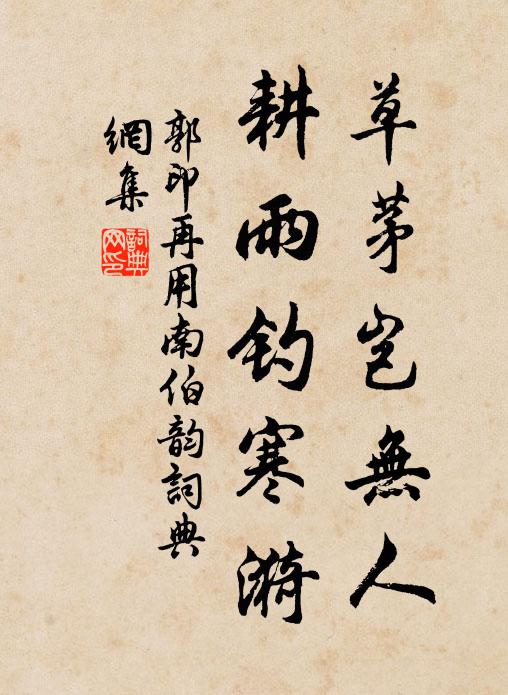 草茅豈無人
耕雨钓寒漪
郭印再用南伯韵詞典
網集
詞典網印